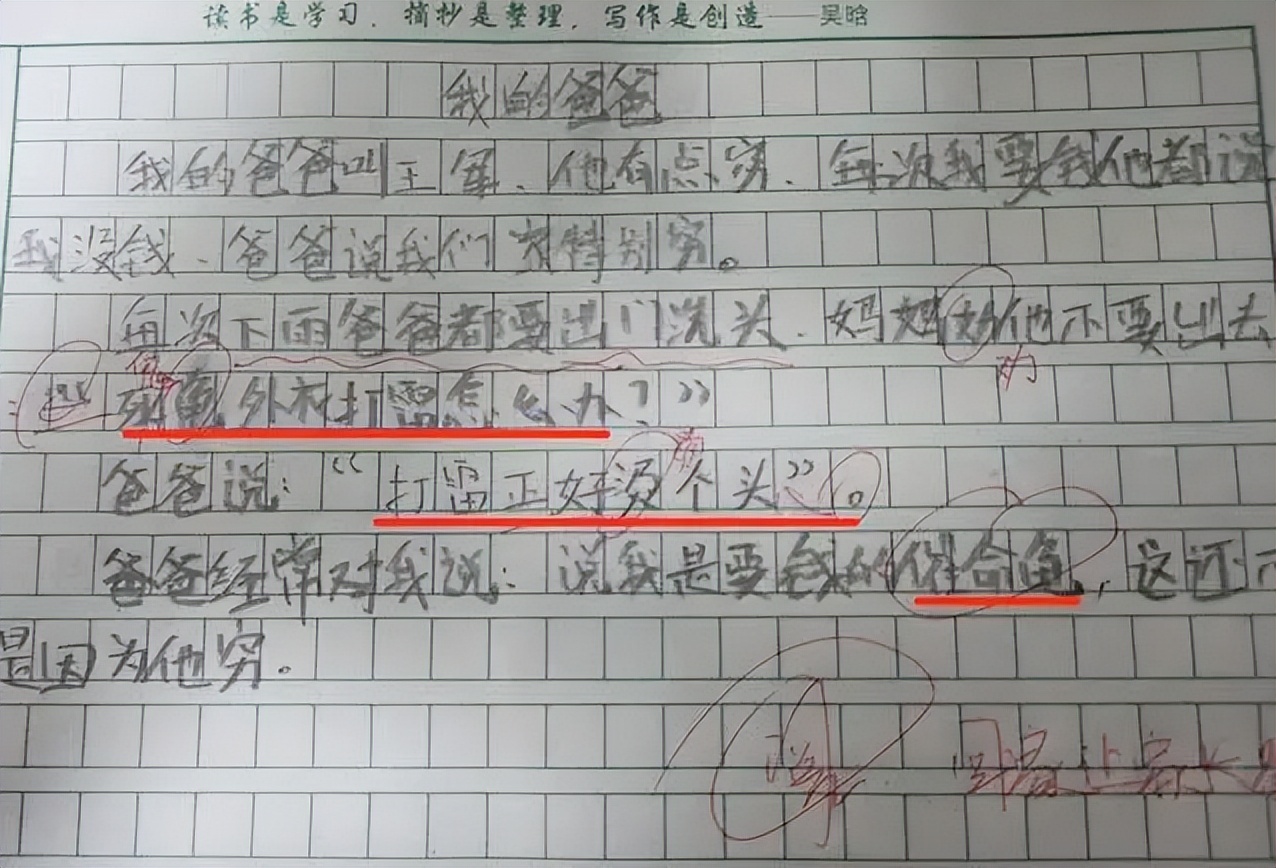 读书是学习，摘抄是整理，写作是创造——吴晗
我的爸爸
我的爸爸叫王军、他有点穷、每次我要钱他都说
我没钱、爸爸说我们家特别穷。
每次下雨爸爸都要出门洗头、妈妈劝他不要出去
外衣打雷怎么办？”
爸爸说：“打雷正好烫个头”。
爸爸经常对我说：说我是要钱的催命鬼，这还不
是因为他穷。